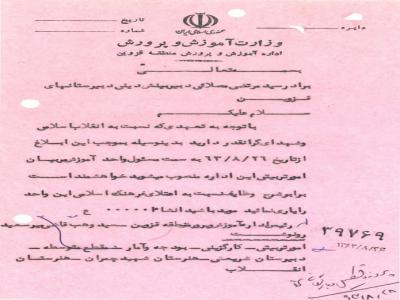 دایره
تاریخ
شماره
جمهوری اسلامی ایران
وزارت آموزش و پرورش
اداره آموزش و پرورش منطقه قزوین
بسمه تعالی
برادر سید مرتضی دبیر بینش دینی دبیرستانهای
قزوین
سلام علیکم
با توجه به تعهدی که نسبت به انقلاب اسلامی
و شهدای گرانقدر دارید بدینوسیله بموجب این ابلاغ
از تاریخ ۶۳/۸/۲۶ به سمت مسئول واحد آموزش مربیان
امور تربیتی این اداره منصوب میشوید خواهشمند است
برابر شرح وظایف نسبت به اعتلای فرهنگ اسلامی این واحد
را یاری نمائید موید باشید انشاا
رئیس اداره آموزش و پرورش منطقه قزوین سعید وهب
رونوشت
۳۹۷۶۹
امور تربیتی - کارگزینی - بودجه و آمار - مقطع متوسطه -
دبیرستان شریعتی - هنرستان شهید چمران - هنرستان
انقلاب